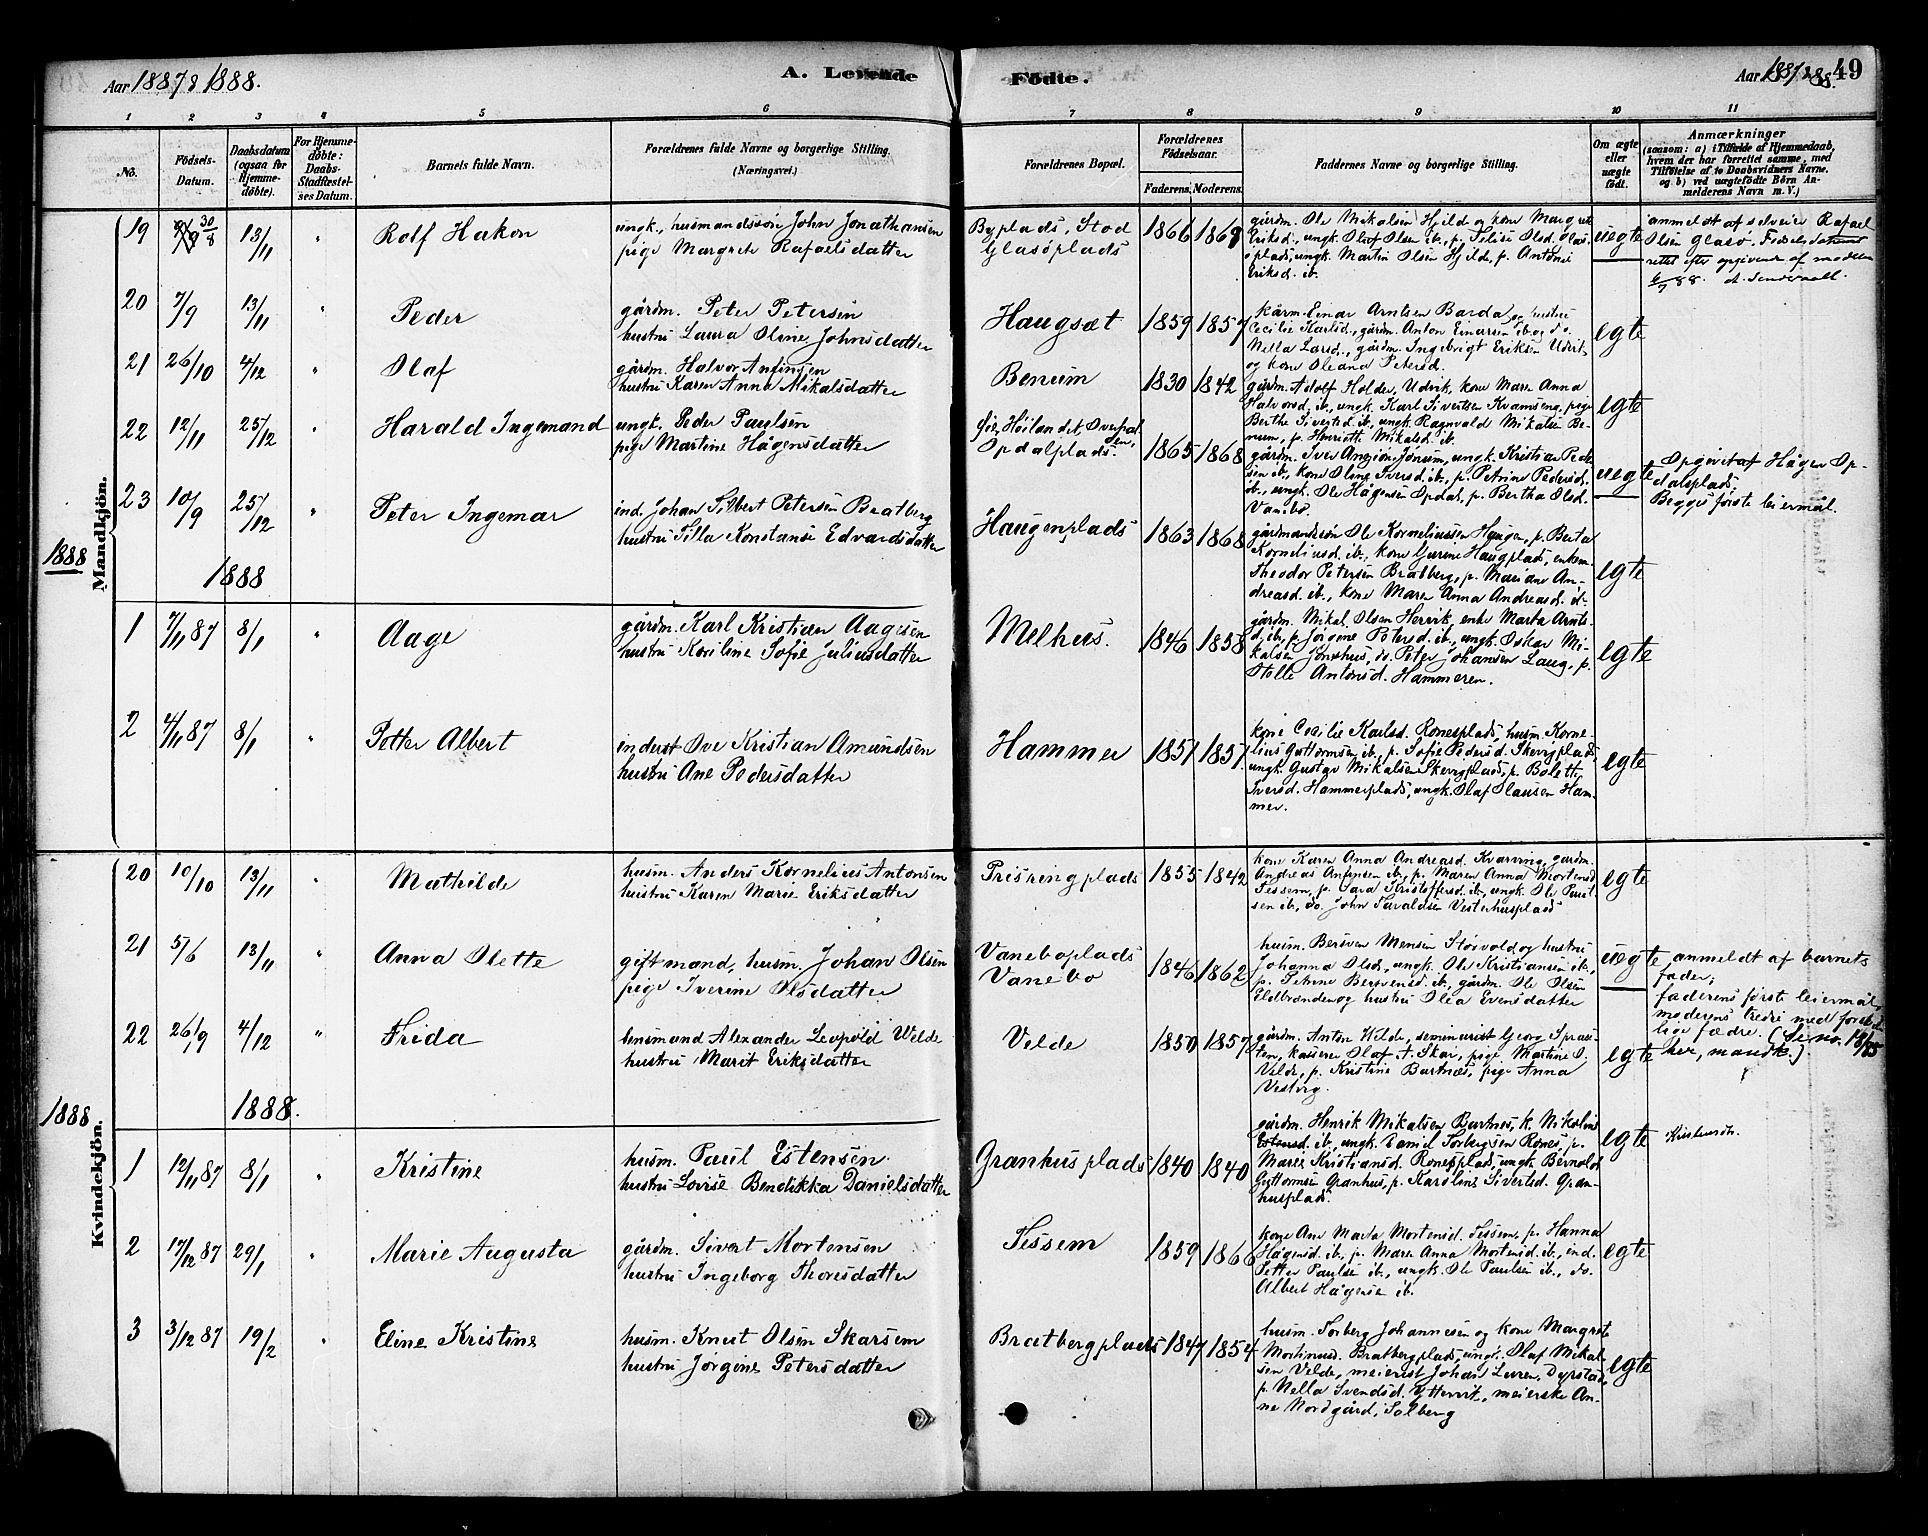 Aar 1887 & 1888.
A. Levende
Fødte.
Aar 1887 & 88.
49
1 2 3 4 5 6 7 8 9 10 11
No.
Fødsels-Datum.
Daabsdatum (ogsaa for Hjemmedøbte).
For Hjemmedøbte: Daabs-Stadfæstelses Datum.
Barnets fulde Navn.
Forældrenes fulde Navne og borgerlige Stilling. (Næringsvei.)
Forældrenes Bopæl.
Forældrenes Fødselsaar.
Faderens. Moderens.
Faddernes Navne og borgerlige Stilling.
Om ægte eller uægte født.
Anmærkninger (saasom: a) i Tilfælde af Hjemmedaab, hvem der har forrettet samme, med Tilføielse af to Daabsvidners Navne, og b) ved uægtefødte Børn Anmelderens Navn m. V.)
Mandkjøn.
19 30/8 13/11 " Rolf Hakon
ungk., husmandssøn John Jonathansen
pige Margrete Rafaelsdatter
Byplads, Stod
Glasøplads
1866 1868
gårdm. Ole Mikalsen Hjeld og kone Margrete
Eriksd., ungk. Olaf Olsen ib., p. Olsd. Glas-
øplads, ungk. Martin Olsen Hjeld, p. Antonie
Eriksd. ib.
uegte
anmeldt af selveier Rafael
Olsen Glasø. Fødselsdatoen
rettet efter opgivende af moderen
20 7/9 13/11 " Peder
gårdm. Peter Petersen
hustru Laura Oline Johnsdatter
Haugsæt
1859 1857
kårm. Einar Arntsen Barda og hustru
Cecilie Karlsd., gårdm. Anton Einarsen ib. og do.
Nella Larsd., gårdm. Ingebrigt Eriksen
og kone Oleana Petersd.
egte
21 26/10 4/12 " Olaf
gårdm. Halvor Anfinsen
hustru Karen Anna Mikalsdatter
Benum
1830 1842
gårdm. Adolf Holder, Udvik, kone Maren Anna
Halvorsd. ib., ungk. Karl Sivertsen Kvamseng, pige
Berthe Sivertsd. ib., ungk. Ragnvald Mikalsen Be-
num, p. Henriette Mikalsd. ib.
egte
22 12/11 25/12 Harald Ingemand
ungk. Peder Paulsen
pige Martine Hågensdatter
Høilandet Overhal-
den,
Opdalplads.
1865 1868
gårdm. Iver Jonum, ungk. Kristian Pede
sen ib., kone Oline Iversd. ib., p. Petrine Pedersd.
ib., ungk. Ole Hågensen Opdal, p. Bertha Olsd.
Vanebo.
uegte
Opgivet af Hågen Op-
dalsplads.
Begges første leiermål.
23 10/9 25/12 " Peter Ingemar
ind. Johan Petersen Bratberg
hustru Konstanse Edvardsdatter
Haugenplads
1863 1868
gårdmandssøn Ole Korneliussen Haugen, p. Berta
Korneliusd. ib., kone Gurine Haugplads, enkem.
Theodor Petersen Bratberg, p. Mariane An-
dreasd. ib., kone Maren Anna Andreasd. ib.
egte
1888
1888
1 7/11 87 8/1 " Aage
gårdm. Karl Kristian Aagesen
hustru Sofie Juliusdatter
Melhus.
1846 1858
gårdm. Mikal Olsen Hervik, enke Marta Arnts-
d. ib., p. Jørgine Petersd. ib., ungk. Oskar Mi-
kalsen Jonshus, do. Peter Johansen Laug, p.
Antonsd. Hammeren.
egte
2 4/11 87 8/1 " Petter Albert
inderst Ove Kristian Amundsen
hustru Ane Pedersdatter
Hammer
1851 1851
kone Cecilie Karlsd. Ronesplads, husm. Korne-
lius Guttormsen ib., p. Sofie Pedersd. Skevigplads
ungk. Gustav Mikalsen Skevigplads, p. Bolette
Iversd. Hammerplads, ungk. Olaf Olausen Ham-
mer.
egte
Kvindekjøn.
20 10/10 13/11 " Mathilde
husm. Anders Kornelius Antonsen
hustru Karen Marie Eriksdatter
Prisringplads
1855 1842
kone Karen Anna Andreasd. Kvarving, gårdm.
Andreas Anfinsen ib., p. Maren Anna Mortensd.
Tessem, p. Sara Kristoffersd. ib., ungk. Ole Paul-
sen ib., do. John Tavaldsen Vesterhusplads
egte
21 5/6 13/11 " Anna Olette
gift mand, husm. Johan Olsen
pige Iverine Olsdatter
Vaneboplads
Vanebo
1846 1862
husm. Bersven Monsen Storvold og hustru
Johanna Olsd., ungk. Ole Kristiansen ib.,
p. Petrine Bersvensd. ib., gårdm. Ole Olsen
Eldbranden og hustru Olea Evensdatter
uegte
anmeldt af barnets
fader;
faderens første leiermål,
moderens tredie med forskjel-
lige fædre. (Se no. 18/85
her, mandk.).
22 26/9 4/12 " Frida
lensmand Alexander Leopold Velde
hustru Marit Eriksdatter
Velde
1850 1857
gårdm. Anton Velde, seminarist Georg
kasserer Olaf A. Skar, pige Martine O.
Velde, p. Kristine Bartnes, pige Anna
Vestvig.
egte
1888
1888.
1 12/11 87 8/1 " Kristine
husm. Paul Estensen
hustru Lovise Bendikka Danielsdatter
Granhusplads
1840 1840
gårdm. Henrik Mikalsen Bartnes, k. Nikoline
Estensd. ib., ungk. Daniel Torbergsen Rones, p.
Maren Kristiansd. Ronesplads, ungk. Bernoldt
Guttormsen Granhus, p. Karoline Sivertsd. Gran-
husplads.
egte
2 17/12 87 29/1 " Marie Augusta
gårdm. Sivert Mortensen
hustru Ingeborg Thoresdatter
Tessem
1859 1866
kone Ane Marta Mortensd. Tessem, p. Hanna
Hågensd. ib., p. Maren Anna Mortensd. ib., ind.
Petter Paulsen ib., ungk. Ole Paulsen ib., do.
Albert Hågensen ib.
egte
3 3/12 87 19/2 " Eline Kristine
husm. Knut Olsen Skarsem
hustru Jørgine Petersdatter
Bratbergplads
1847 1854
husm. Torberg Johannesen og kone Margrete
Mortinusd. Bratbergplads, ungk. Olaf Mikal-
sen Velde, meierist Johan Luren, Dyrstad,
p. Nella Svendsd. Yttervik, meierske An-
ne Nordgård, Solberg
egte